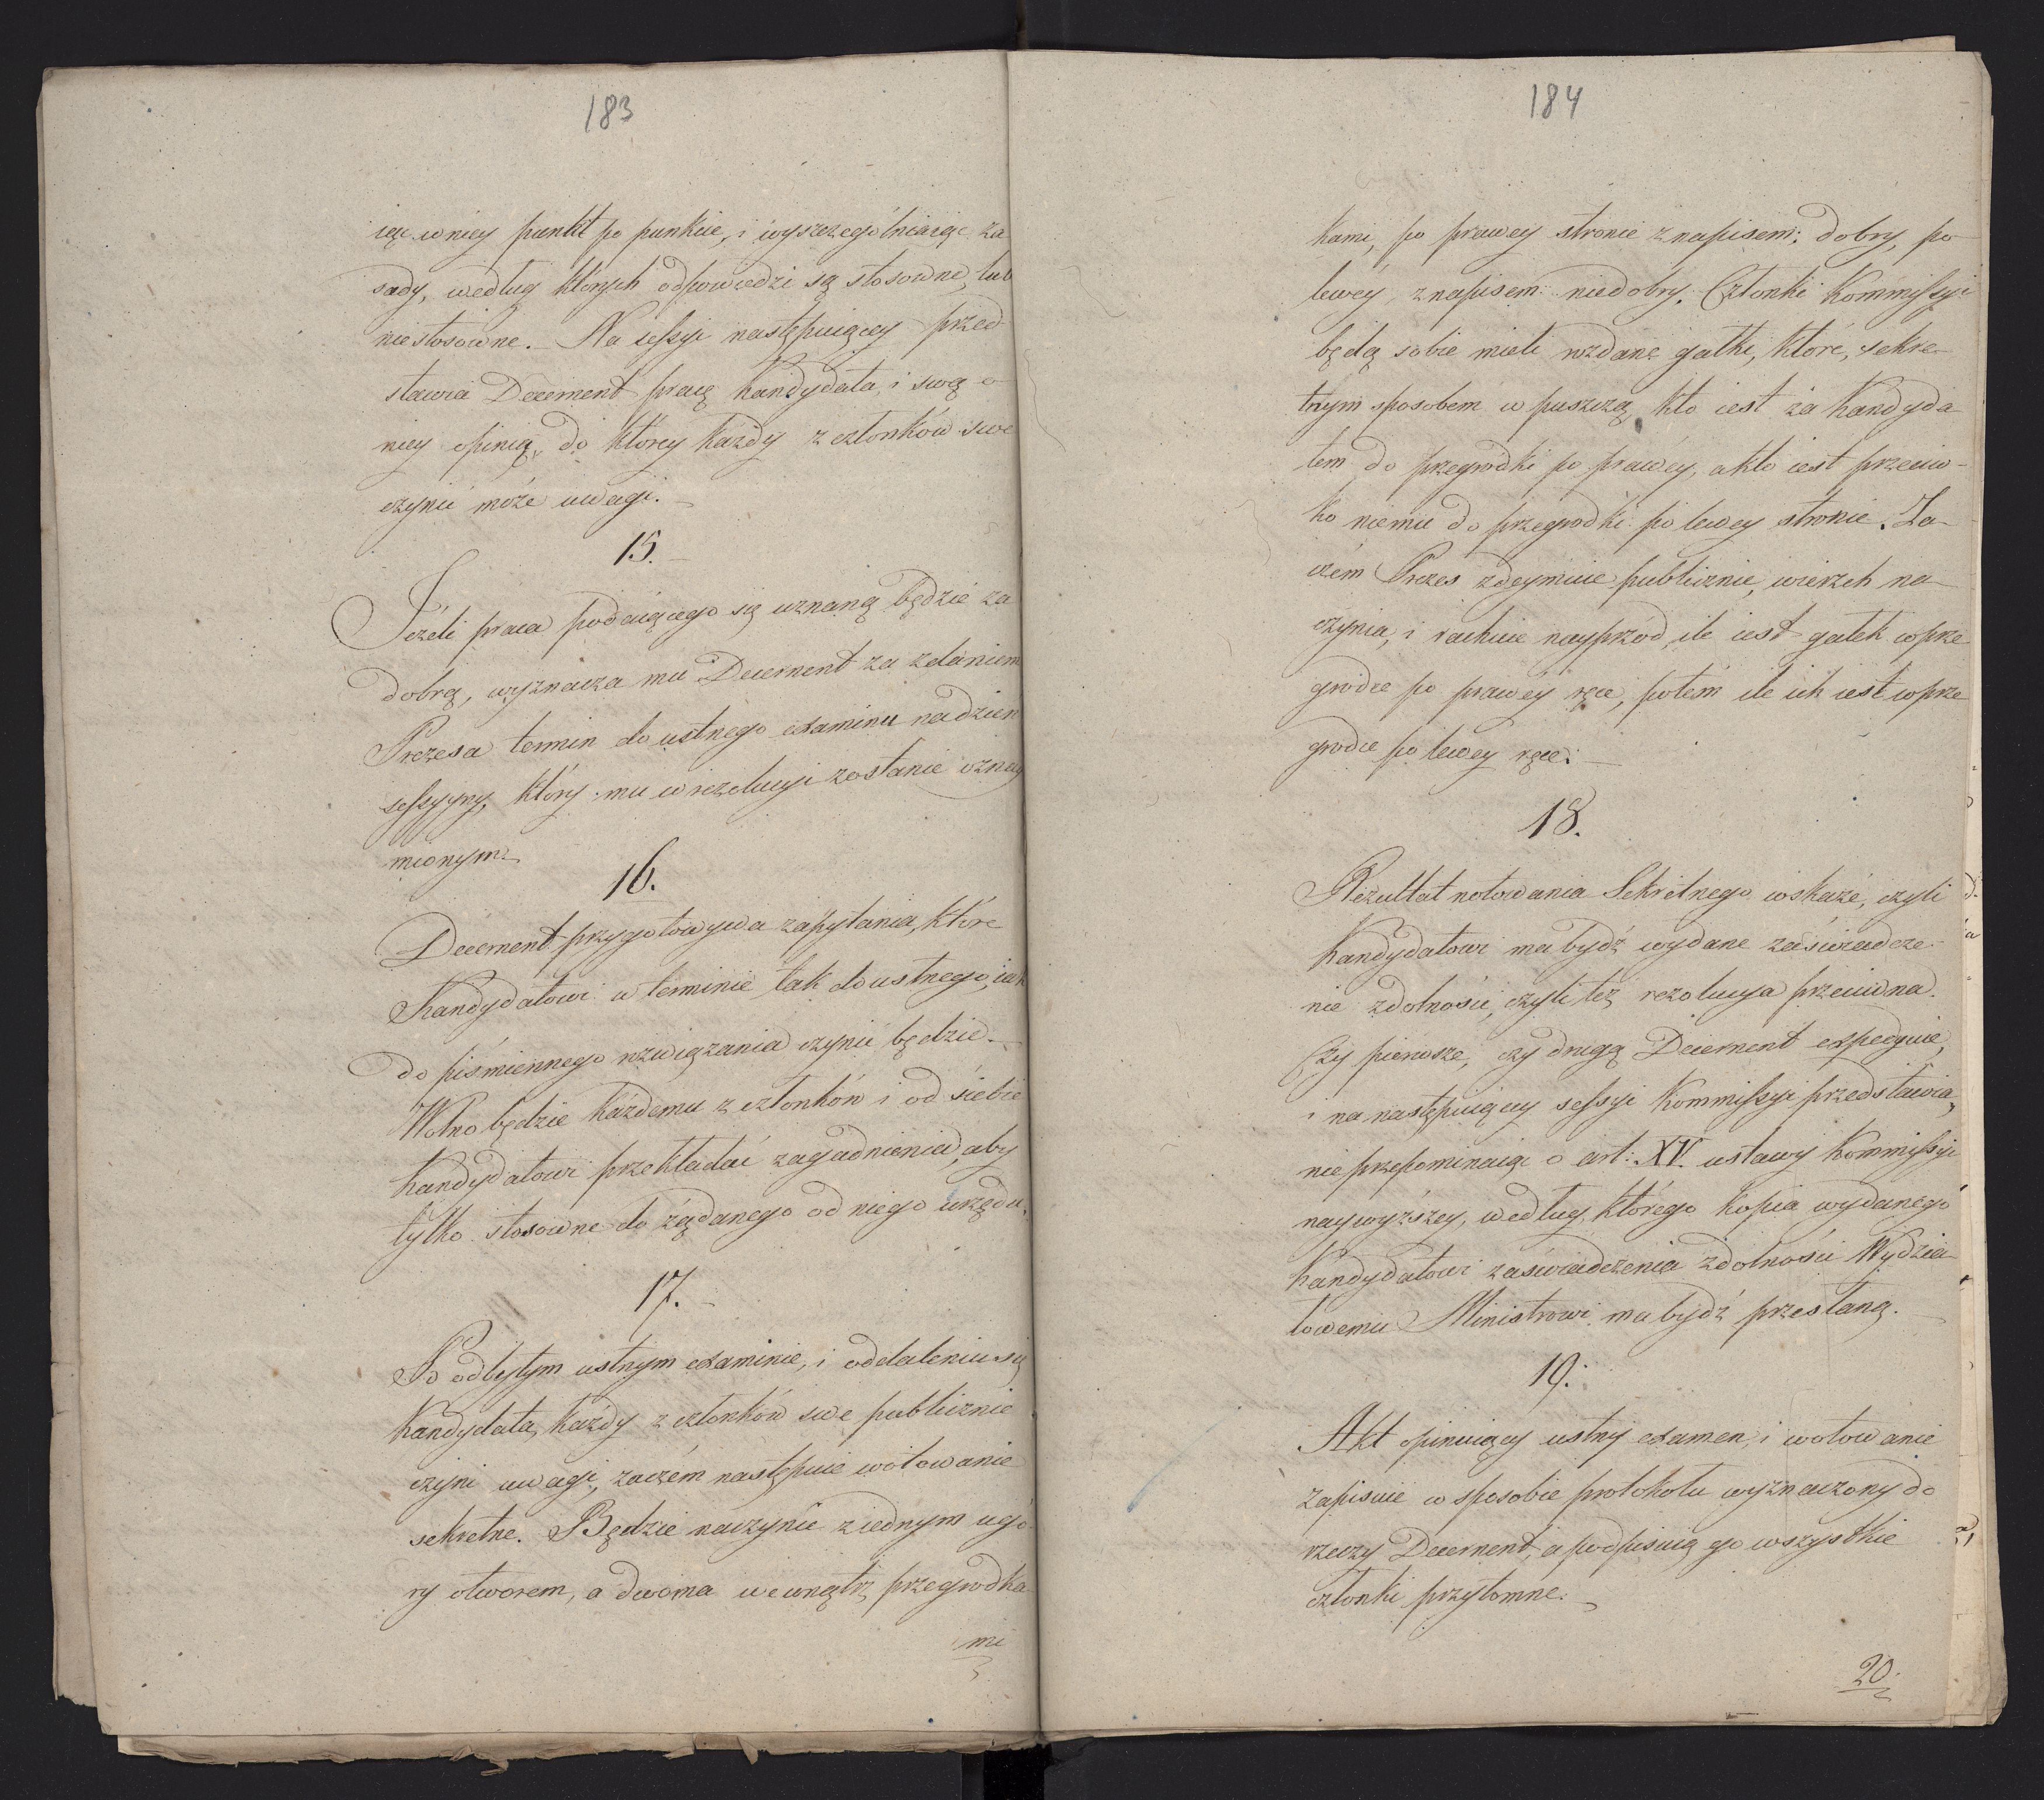 183
iąc w niey punkt po punkcie, i wyszczególniaiąc za
sady, według których odpowiedzi są stosowne, lub
niestosowne. Na sessyi następuiącey przed
stawia Decernent pracę kandydata, i swą o
niey opinią, do którey każdy z członków swe
czynić może uwagi.
15.
Jeżeli praca podaiącego się uznaną będzie za
dobrą, wyznacza mu Decernent za zdaniem
Prezesa termin do ustnego examinu na dzień
sessyyny, który mu w rezolucyi zostanie oznay
mionym.
16.
Decernent przygotowywa zapytania, które
Kandydatowi w terminie tak do ustnego, iak
do piśmiennego rozwiązania czynić będzie.
Wolno będzie każdemu z członków i od siebie
Kandydatowi przekładać zagadnienia, aby
tylko stosowne do żądanego od niego urzędu.
17.
Po odbytym ustnym examinie, i oddaleniu się
Kandydata, każdy z członków swe publicznie
czyni uwagi, zaczém następuie wotowanie
sekretne. Będzie naczynie z iednym u gó
ry otworem, a dwoma wewnątrz przegrodka
mi
184
kami, po prawey stronie z napisem: dobry, po
lewéy, z napisem: niedobry. Członki Kommissyi
będą sobie mieli rozdane gałki, które, sekre-
tnym sposobem wpuszczą, kto iest za Kandyda
tem do przegrodki po prawéy, a kto iest przeciw-
ko niemu do przegrodki po lewey stronie. Za-
czém Prezes zdeymuie publicznie, wierzch na-
czynia, i rachuie nayprzód, ile iest gałek w prze
grodce po prawéy ręce, potém ile ich iest w prze
grodce po lewey ręce.
18.
Rezultat notowania Sekretnego wskaże, czyli
Kandydatowi ma bydź wydane zaświadcze-
nie zdolności, czyli też rezolucya przeciwna.
Czy pierwsze, czy drugą Decernent expedyuie,
i na następuiącey sessyi Kommissyi przedstawia,
nie przepominaiąc o art: XV. ustawy Kommissyi
naywyższey, według którego kopia wydanego
Kandydatowi zaświadczenia zdolności Wydzia
łowemu Ministrowi ma bydź przesłaną.
19.
Akt opiniuiący ustny examen, i wotowanie
zapisuie w sposobie protokołu wyznaczony do
rzeczy Decernent, a podpisuią go wszystkie
członki przytomne.
20.